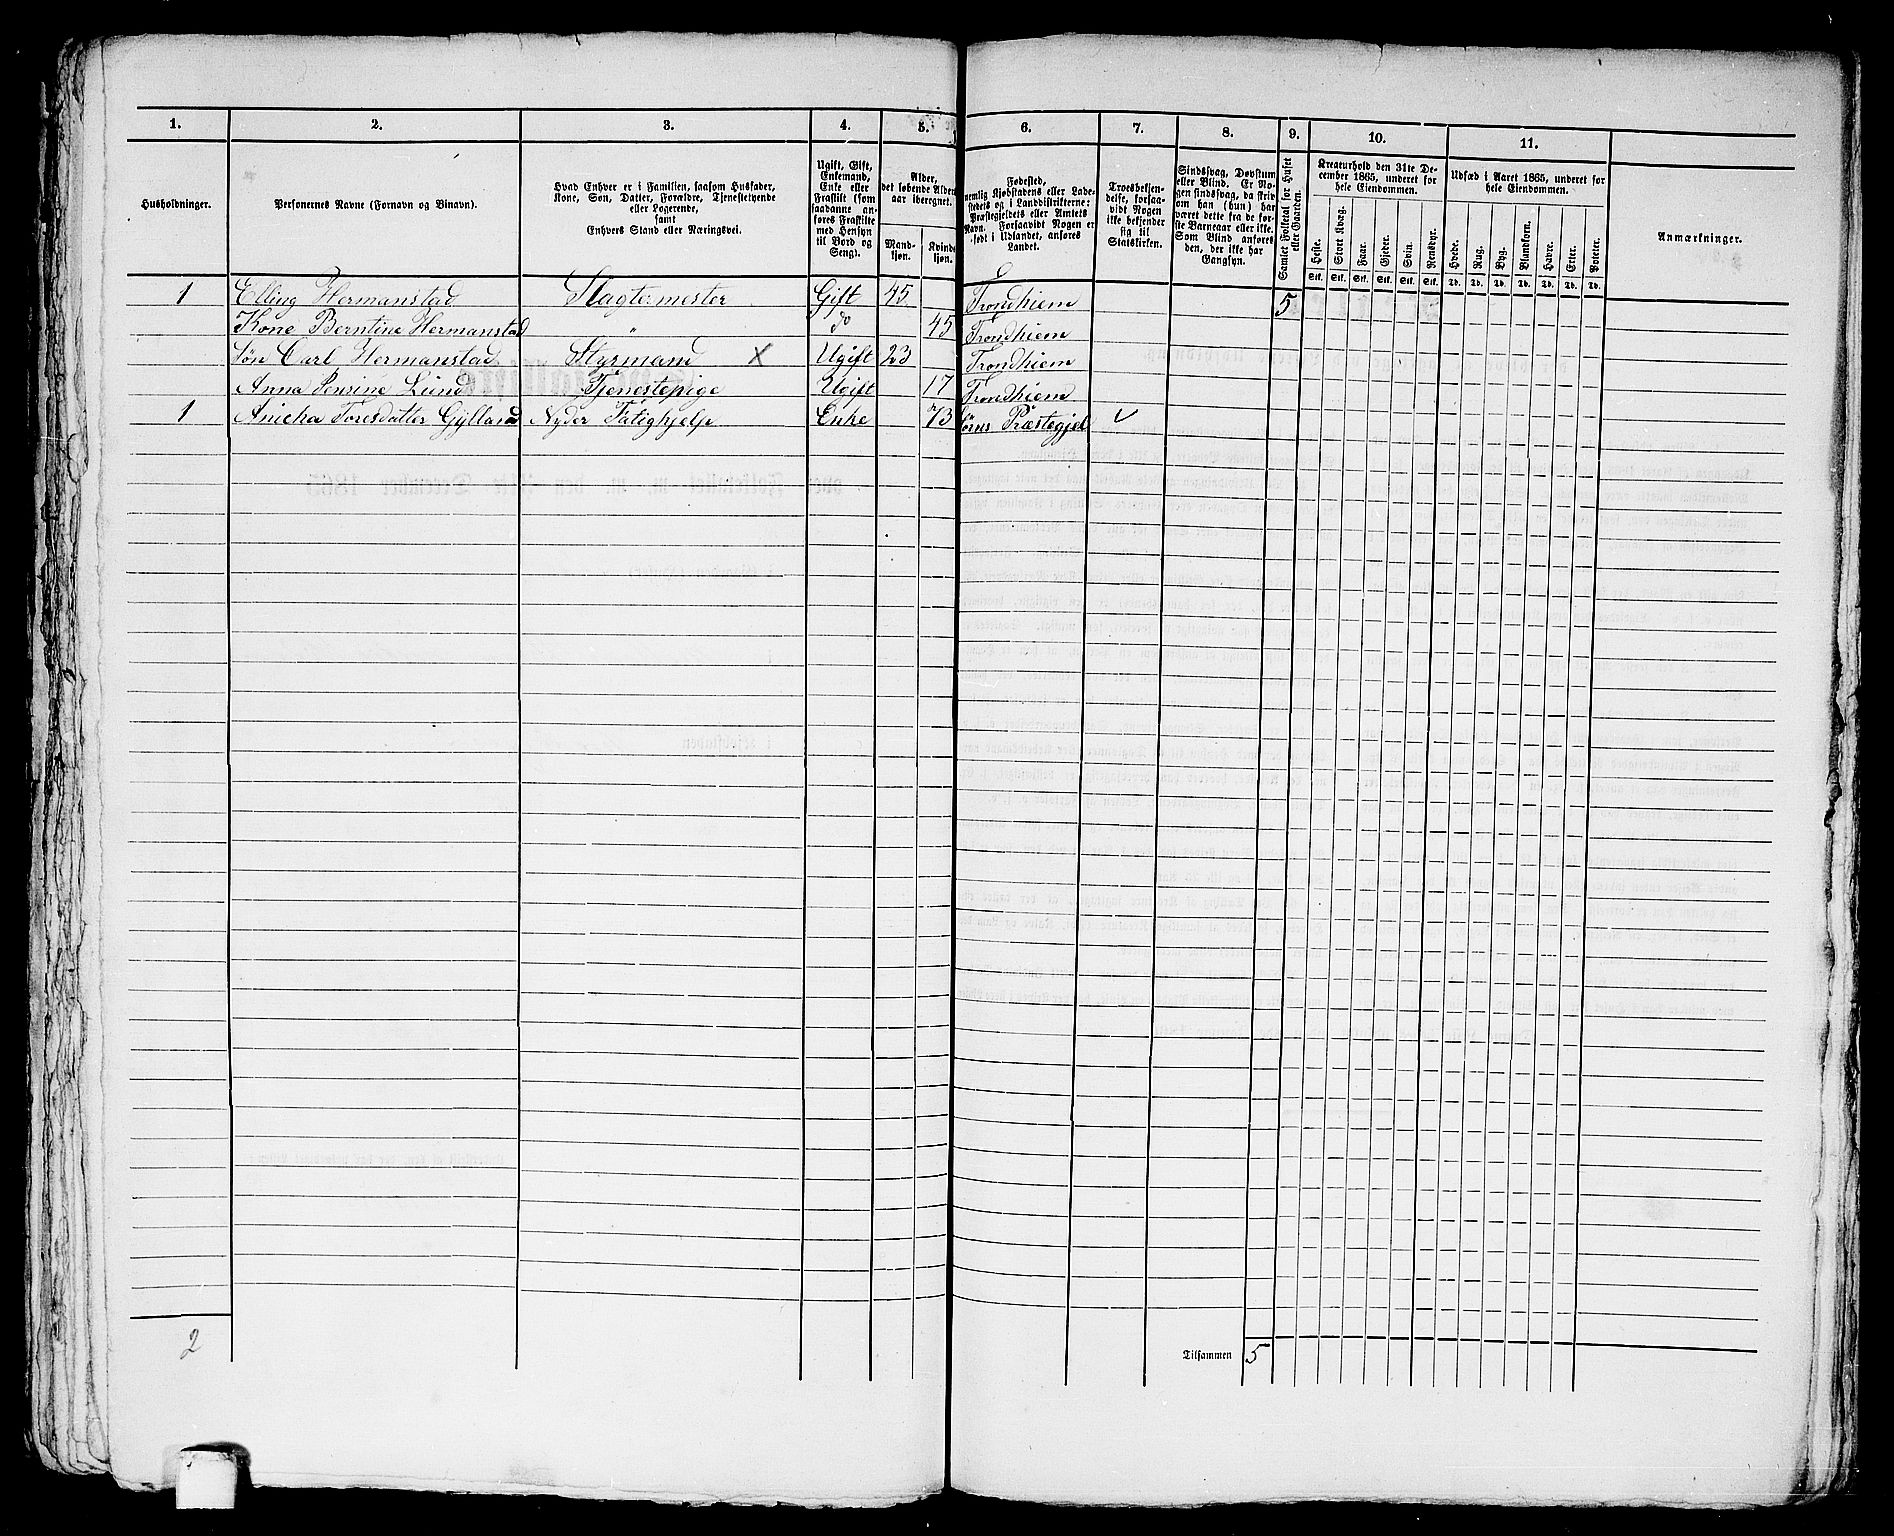 1. 2. 3. 4. 5. 6. 7. 8. 9. 10. 11.
Husholdninger.
Personernes Navne (Fornavn og Binavn).
Hvad Enhver er i Familien, saasom Husfader,
Kone, Søn, Datter, Forældre, Tjenestetyende
eller Logerende,
samt
Enhvers Stand eller Næringsvei.
Ugift, Gift,
Enkemand,
Enke eller
Fraskilt (som
saadanne an-
føres Fraskilte
med Hensyn
til Bord og
Seng).
Alder,
det løbende Alders-
aar iberegnet.
Mand-
kjøn.
Kvind-
kjøn.
Fødested,
nemlig Kjøbstadens eller Lade-
stedets og i Landdistrikterne:
Præstegjeldets eller Amtets
Navn. Forsaavidt Nogen er
født i Udlandet, anføres
Landet.
Troesbekjen-
delse, forsaa-
vidt Nogen
ikke bekjender
sig til
Statskirken.
Sindssvag, Døvstum
eller Blind. Er No-
gen sindssvag, da skriv
om han (hun) har
været dette fra de før-
ste Barneaar eller ikke.
Som Blind anføres
den, der ikke har
Gangsyn.
Samlet Folketal for Huset
eller Gaarden.
Kreaturhold den 31te De-
cember 1865, underet for
hele Eiendommen.
Heste. Stort Kvæg. Faar. Gjeder. Svin. Rensdyr.
Stk. Stk. Stk. Stk. Stk. Stk.
Udsæd i Aaret 1865, underet for
hele Eiendommen.
Hvede. Rug. Byg. Blandkorn. Havre. Erter. Poteter.
Td. Td. Td. Td. Td. Td. Td.
Anmærkninger.
1 Elling Hermanstad Slagtermester Gift 45. Trondhiem 5
Kone Berntine Hermanstad " do 45 Trondhiem
Søn Carl Hermanstad Styrmand X Ugift 23 Trondhiem
Anna Lund Tjenestepige Ugift 17 Trondhiem
1 Anicka Toresdatter Gylland Nyder Fatighjelp Enke 73 Præstegjel
2 Tilsammen 5